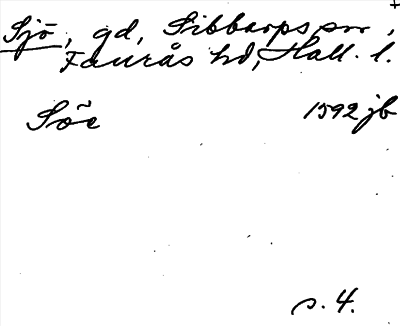 Sjö, gd, Sibbarps sn,
Faurås hd, Hall. l.
Söe 1592 jb
s. 4.